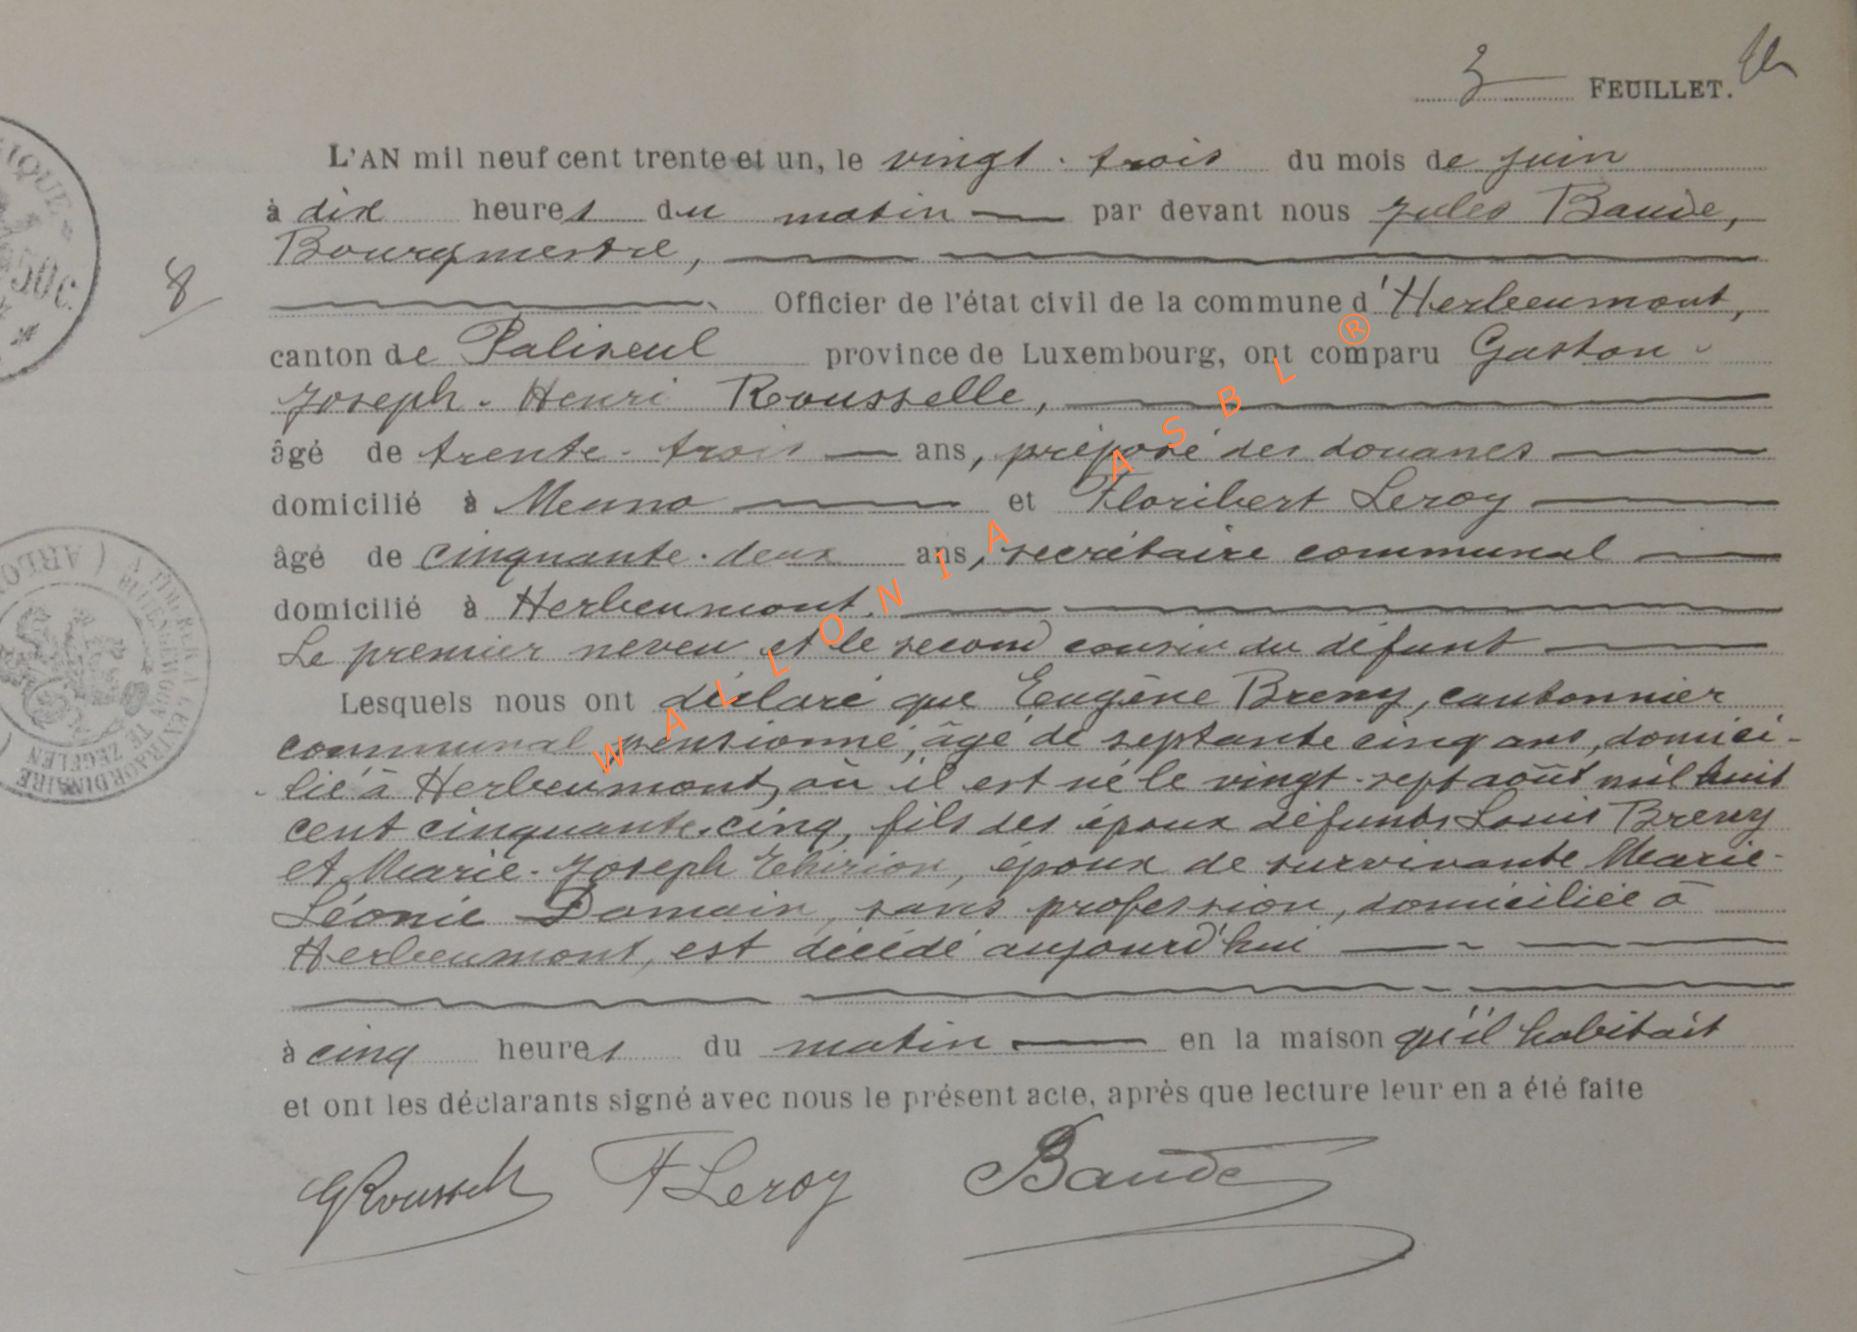 3 FEUILLET.
L'AN mil neuf cent trente et un, le vingt-trois du mois de juin
à dix heures du matin par devant nous Jules Baude,
Bourgmestre,
8
Officier de l'état civil de la commune d'Herbeumont,
canton de Paliseul province de Luxembourg, ont comparu Gaston-
Joseph-Henri Rousselle,
âgé de trente-trois ans, préposé des douanes
domicilié à Muno et Floribert Leroy
âgé de cinquante-deux ans, secrétaire communal
domicilié à Herbeumont.
Le premier neveu et le second cousin du défunt
Lesquels nous ont déclaré que Eugène Breny, cantonnier
communal pensionné, âgé de septante cinq ans, domici-
lié à Herbeumont, où il est né le vingt-sept août mil huit
cent cinquante-cinq, fils des époux défunts Louis Breny
et Marie-Joseph Thirion, époux de survivante Marie-
Léonie Damain, sans profession, domiciliée à
Herbeumont, est décédé aujourd'hui
à cinq heures du matin en la maison qu'il habitait
et ont les déclarants signé avec nous le présent acte, après que lecture leur en a été faite
GRoussele FLeroy Baude
WALLONIA ASBL ®
50 C.